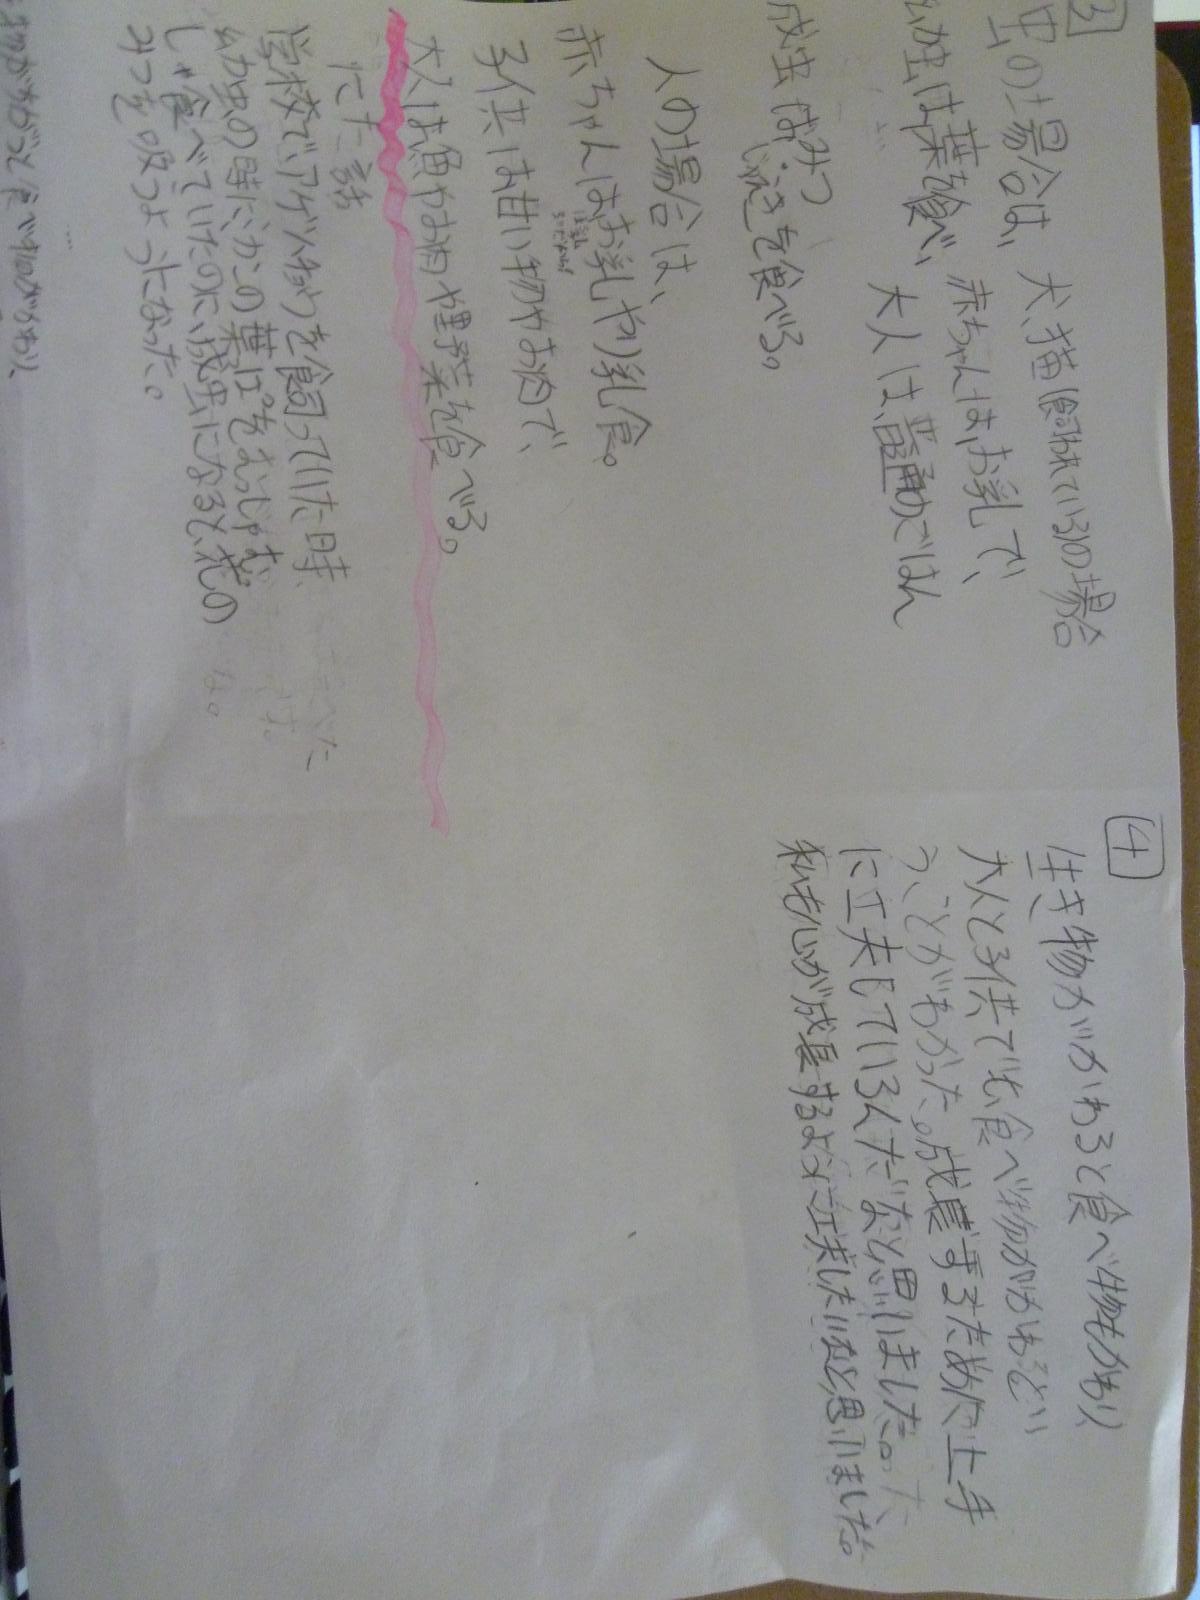 3
虫の場合は、
幼虫は葉を食べ、
成虫はみつ
じゅえきを食べる。
犬、猫 飼われているの場合
赤ちゃんはお乳で、
大人は、普通のごはん
人の場合は、
赤ちゃんはお乳やり乳食。
子供は甘い物やお肉で、
大人は魚やお肉や野菜を食べる。
にた話
学校で、アゲハちょうを飼っていた時、
幼虫の時にみかんの葉っぱをむっしゃむ
しゃ食べていたのに、成虫になると、花の
みつを吸うようになった。
4
生き物がかわると食べ物もかわり、
大人と子供でも、食べ物がかわるとい
う、ことがわかった。成長するために上手
に工夫しているんだなと、思いました。
私も心が成長するように工夫したいなと、思いました。